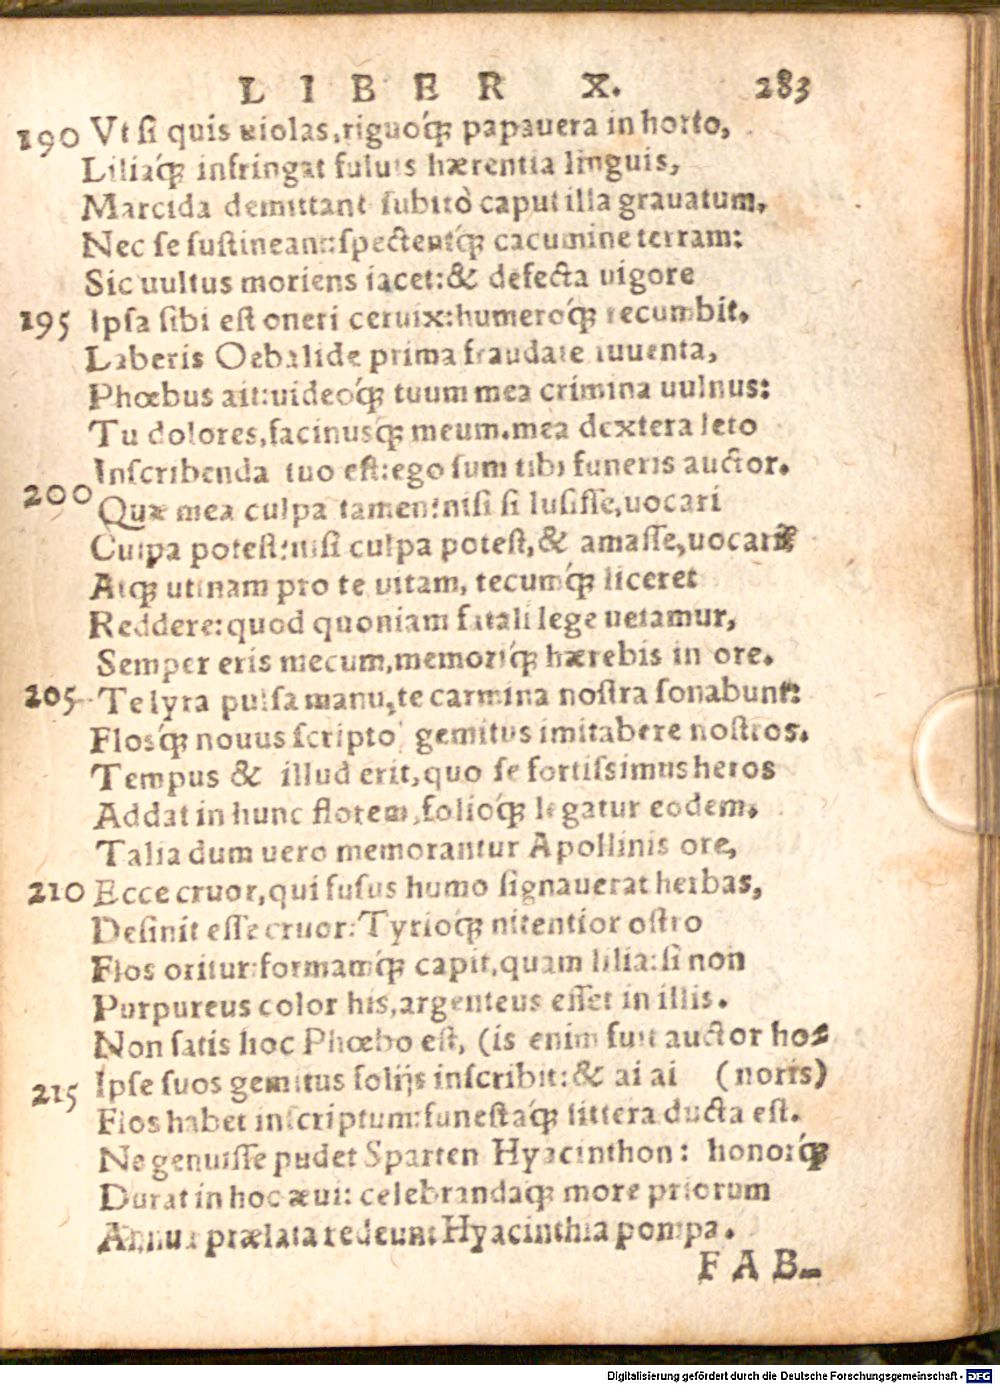 LIBER X. 283
190 Vt si quis uiolas, riguoq́; papauera in horto,
Liliaq́; infringat fuluis hærentia linguis,
Marcida demittant subitò caput illa grauatum,
Nec se sustineant: spectentq́; cacumine terram:
Sic uultus moriens iacet: & defecta uigore
195 Ipsa sibi est oneri ceruix: humeroq́; recumbit.
Laberis Oebalide prima fraudate iuuenta,
Phœbus ait: uideoq́; tuum mea crimina uulnus:
Tu dolores, facinusq́; meum. mea dextera leto
Inscribenda tuo est: ego sum tibi funeris auctor.
200 Quæ mea culpa tamen: nisi si lusisse, uocari
Culpa potest: nisi culpa potest, & amasse, uocari?
Atq; utinam pro te uitam, tecumq́; liceret
Reddere: quod quoniam fatali lege uetamur,
Semper eris mecum, memoriq́; hærebis in ore.
205 Te lyra pulsa manu, te carmina nostra sonabunt:
Flosq́; nouus scripto gemitus imitabere nostros.
Tempus & illud erit, quo se fortissimus heros
Addat in hunc florem, folioq́; legatur eodem.
Talia dum uero memorantur Apollinis ore,
210 Ecce cruor, qui fusus humo signauerat herbas,
Desinit esse cruor: Tyrioq́; nitentior ostro
Flos oritur: formamq́; capit, quam lilia: si non
Purpureus color his, argenteus esset in illis.
Non satis hoc Phœbo est, (is enim fuit auctor ho=
215 Ipse suos gemitus folijs inscribit: & ai ai (noris)
Flos habet inscriptum: funestaq́; littera ducta est.
Ne genuisse pudet Sparten Hyacinthon: honorq́;
Durat in hoc æui: celebrandaq; more priorum
Annua prælata redeunt Hyacinthia pompa.
FAB-
Digitalisierung gefördert durch die Deutsche Forschungsgemeinschaft - DFG